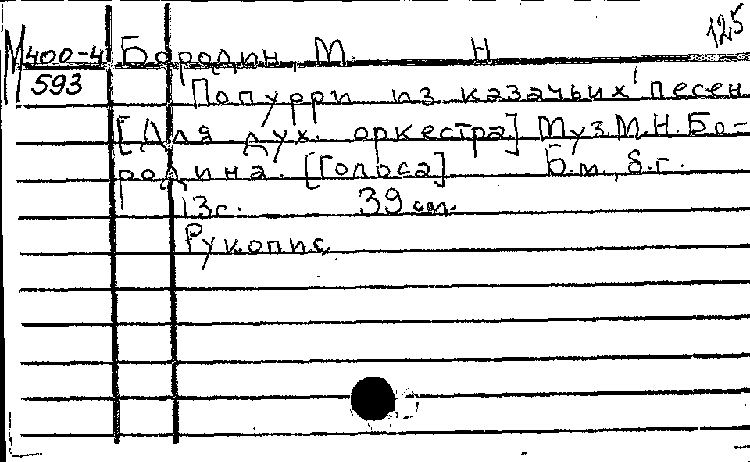 125
М 400-4 Бородин, М. Н
593
Попурри из казачьих песен
[Для дух. оркестра] Муз. М.Н. Бо-
родина. [Голоса] Б.м., б.г.
13с. 39 см.
Рукопис